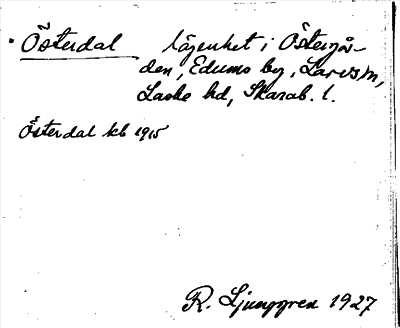 Österdal lägenhet i Östergår-
den, Edums by, Larvs sn,
Laske hd, Skarab. l.
Österdal kb 1915
R. Ljunggren 1927